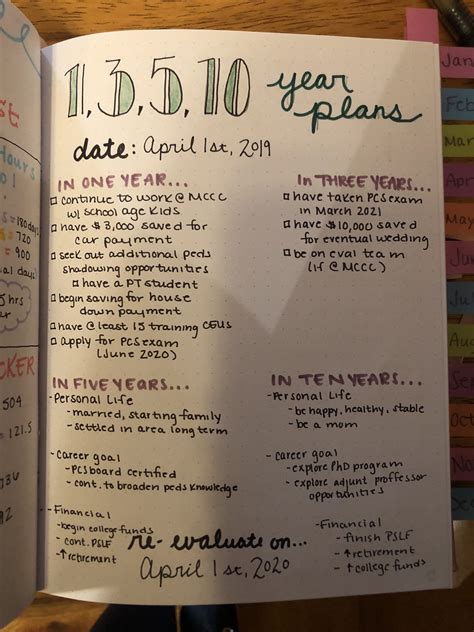 1, 3, 5, 10 year plans
date: April 1st, 2019
IN ONE YEAR...
□ continue to work @ MCCC
w/ school age kids
□ have $3,000 saved for
car payment
□ seek out additional peds
shadowing opportunities
□ have a PT student
□ begin saving for house
down payment
□ have @ least 15 training CEUs
□ apply for PCS exam
(June 2020)
IN THREE YEARS...
□ have taken PCS exam
in March 2021
□ have $10,000 saved
for eventual wedding
□ be on eval team
(if @ MCCC)
IN FIVE YEARS...
- Personal Life
- married, starting family
- settled in area long term
- Career goal
- PCS board certified
- cont. to broaden peds knowledge
- Financial
- begin college funds
- cont. PSLF
- ↑ retirement
IN TEN YEARS...
- Personal Life
- be happy, healthy, stable
- be a mom
- Career goal
- explore PhD program
- explore adjunct professor
opportunities
- Financial
- finish PSLF
- ↑ retirement
- ↑ college funds
re-evaluate on...
April 1st, 2020
Hours
= 180 days
= 720
= 900
hrs
CKER
504
= 121.5
Janu
Feb
Mar
Apri
May
Jun
July
Aug
Sep
Oct
Nov